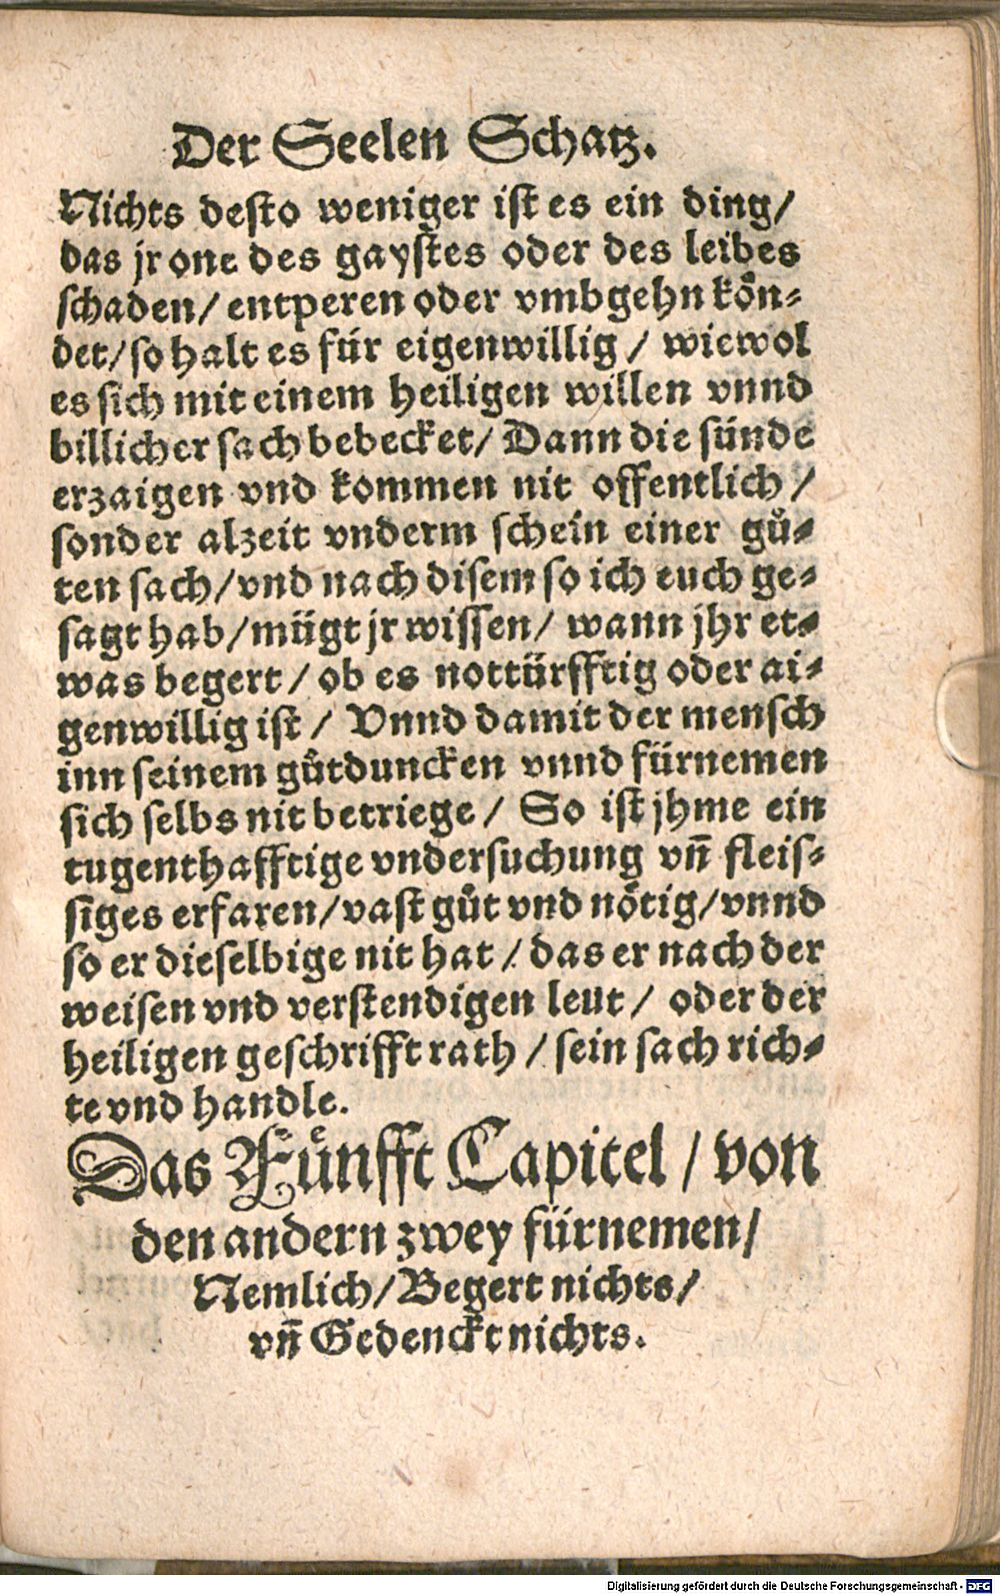 Der Seelen Schatz.
Nichts desto weniger ist es ein ding/
das jr one des gaystes oder des leibes
schaden/ entperen oder vmbgehn koͤn⸗
det/ so halt es für eigenwillig / wiewol
es sich mit einem heiligen willen vnnd
billicher sach bebecket/ Dann die sünde
erzaigen vnd kommen nit offentlich /
sonder alzeit vnderm schein einer guͤ⸗
ten sach/ vnd nach disem so ich euch ge⸗
sagt hab/ mügt jr wissen/ wann jhr et⸗
was begert / ob es nottürfftig oder ai⸗
genwillig ist / Vnnd damit der mensch
inn seinem guͦtduncken vnnd fürnemen
sich selbs nit betriege / So ist jhme ein
tugenthafftige vndersuchung vñ fleis⸗
siges erfaren/ vast guͦt vnd noͤtig/ vnnd
so er dieselbige nit hat / das er nach der
weisen vnd verstendigen leut / oder der
heiligen geschrifft rath / sein sach rich⸗
te vnd handle.
Das Fuͤnfft Capitel / von
den andern zwey fürnemen/
Nemlich/ Begert nichts/
vñ Gedenckt nichts.
Digitalisierung gefördert durch die Deutsche Forschungsgemeinschaft - DFG